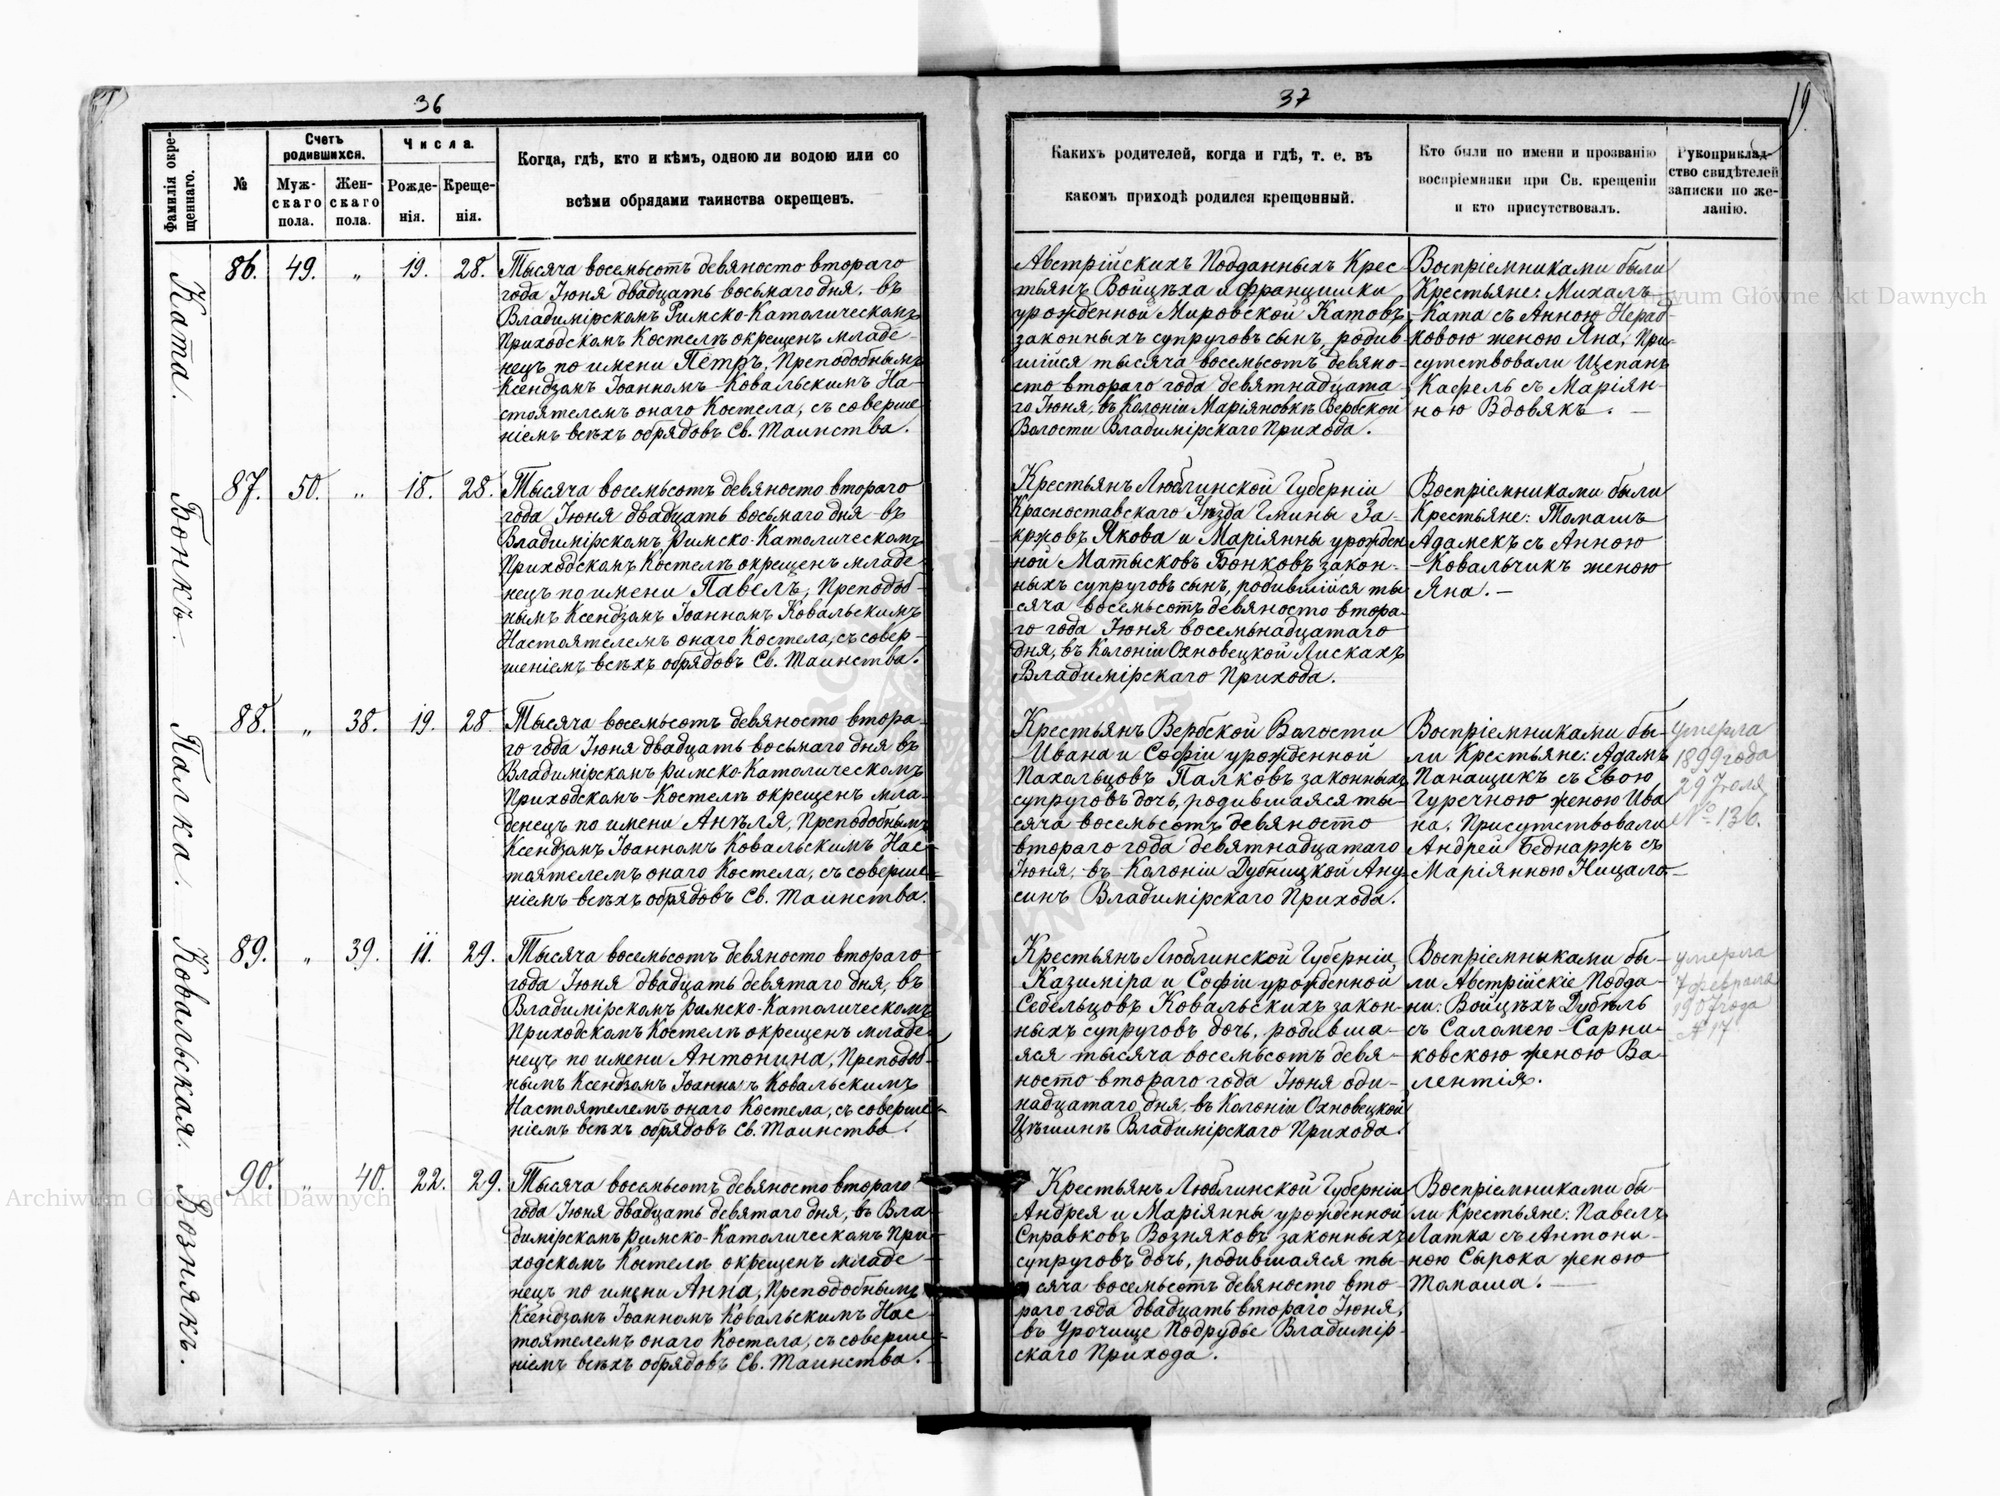 36
Фамилія окре-
щеннаго.
№
Счетъ
родившихся.
Муж-
скаго
пола.
Жен-
скаго
пола.
Числа.
Рожде-
нія.
Креще-
нія.
Когда, гдѣ, кто и кѣмъ, одною ли водою или со
всѣми обрядами таинства окрещенъ.
Ката.
86. 49. „ 19. 28.
Тысяча восемьсотъ девяносто втораго
года Іюня двадцать восьмаго дня, въ
Владимірскомъ Римско-Католическомъ
Приходскомъ Костелѣ окрещенъ младе-
нецъ по имени Петръ, Преподобнымъ
Ксендзомъ Іоанномъ Ковальскимъ На-
стоятелемъ онаго Костела, съ соверше
ніемъ всѣхъ обрядовъ Св. Таинства.
Бонкъ.
87. 50. „ 18. 28.
Тысяча восемьсотъ девяносто втораго
года Іюня двадцать восьмаго дня въ
Владимірскомъ Римско-Католическомъ
Приходскомъ Костелѣ окрещенъ младе
нецъ по имени Павелъ, Преподоб-
нымъ Ксендзомъ Іоанномъ Ковальскимъ
Настоятелемъ онаго Костела, съ совер-
шеніемъ всѣхъ обрядовъ Св. Таинства.
Палка.
88. „ 38. 19. 28
Тысяча восемьсотъ девяносто втора-
го года Іюня двадцать восьмаго дня въ
Владимірскомъ Римско-Католическомъ
Приходскомъ Костелѣ окрещенъ мла-
денецъ по имени Анѣля, Преподобнымъ
Ксендзомъ Іоанномъ Ковальскимъ Нас-
тоятелемъ онаго Костела, съ соверше-
ніемъ всѣхъ обрядовъ Св. Таинства.
Ковальская.
89. „ 39. 11. 29.
Тысяча восемьсотъ девяносто втораго
года Іюня двадцать девятаго дня, въ
Владимірскомъ Римско-Католическомъ
Приходскомъ Костелѣ окрещенъ младе-
нецъ по имени Антонина, Преподоб-
нымъ Ксендзомъ Іоанномъ Ковальскимъ
Настоятелемъ онаго Костела, съ соверше-
ніемъ всѣхъ обрядовъ Св. Таинства.
Вознякъ.
90. „ 40. 22. 29.
Тысяча восемьсотъ девяносто втораго
года Іюня двадцать девятаго дня, въ Вла-
димірскомъ Римско-Католическомъ При
ходскомъ Костелѣ окрещенъ младе-
нецъ по имени Анна, Преподобнымъ
Ксендзомъ Іоанномъ Ковальскимъ Нас-
тоятелемъ онаго Костела, съ соверше-
ніемъ всѣхъ обрядовъ Св. Таинства.
37
19.
Какихъ родителей, когда и гдѣ, т. е. въ
какомъ приходѣ родился крещенный.
Кто были по имени и прозванію
воспріемники при Св. крещеніи
и кто присутствовалъ.
Рукоприклад-
ство свидѣтелей
записки по же-
ланію.
Австрійскихъ Подданныхъ Крес-
тьянъ Войцѣха и Францишки
урожденной Мировской Катовъ
законныхъ супруговъ сынъ, родив-
шійся тысяча восемьсотъ девяно-
сто втораго года девятнадцата-
го Іюня, въ Колоніи Маріяновкѣ Вербской
Волости Владимірскаго Прихода.
Воспріемниками были
Крестьяне: Михалъ
Ката съ Анною Нерад-
ковою женою Яна, При-
сутствовали Щепанъ
Касрель съ Маріян-
ною Вдовякъ.
Крестьянъ Люблинской Губерніи
Красноставскаго Уѣзда Гмины За-
кржовъ Якова и Маріянны урожден
ной Матысковъ Бонковъ закон-
ныхъ супруговъ сынъ, родившійся ты
сяча восемьсотъ девяносто втора-
го года Іюня восемьнадцатаго
дня, въ Колоніи Охновецкой Лискахъ
Владимірскаго Прихода.
Воспріемниками были
Крестьяне: Томашъ
Адамекъ съ Анною
Ковальчикъ женою
Яна.
Крестьянъ Вербской Волости
Ивана и Софіи урожденной
Пахольцовъ Палковъ законныхъ
супруговъ дочь, родившаяся ты-
сяча восемьсотъ девяносто
втораго года девятнадцатаго
Іюня, въ Колоніи Дубницкой Ану-
синъ Владимірскаго Прихода.
Воспріемниками бы-
ли Крестьяне: Адамъ
Панащикъ съ Евою
Гуречною женою Ива
на. Присутствовали
Андрей Беднаржъ съ
Маріянною Ницало
умерла
1899 года
29 Іюля
№ 136.
Крестьянъ Люблинской Губерніи
Казиміра и Софіи урожденной
Себельцовъ Ковальскихъ закон-
ныхъ супруговъ дочь, родивша-
яся тысяча восемьсотъ девя-
носто втораго года Іюня оди-
надцатаго дня, въ Колоніи Охновецкой
Цѣшинѣ Владимірскаго Прихода.
Воспріемниками бы-
ли Австрійскіе Подда-
ни: Войцѣхъ Дубѣль
съ Саломею Сарни-
ковскою женою Ва-
лентія.
умерла
7 февраля
1907 года
№ 17
Крестьянъ Люблинской Губерніи
Андрея и Маріянны урожденной
Справковъ Возняковъ законныхъ
супруговъ дочь, родившаяся ты-
сяча восемьсотъ девяносто вто-
раго года двадцать втораго Іюня,
въ Урочище Подрудье Владимір-
скаго Прихода.
Воспріемниками бы-
ли Крестьяне: Павелъ
Латка съ Антони-
ною Сырока женою
Томаша.
Archiwum Główne Akt Dawnych
Archiwum Główne Akt Dawnych